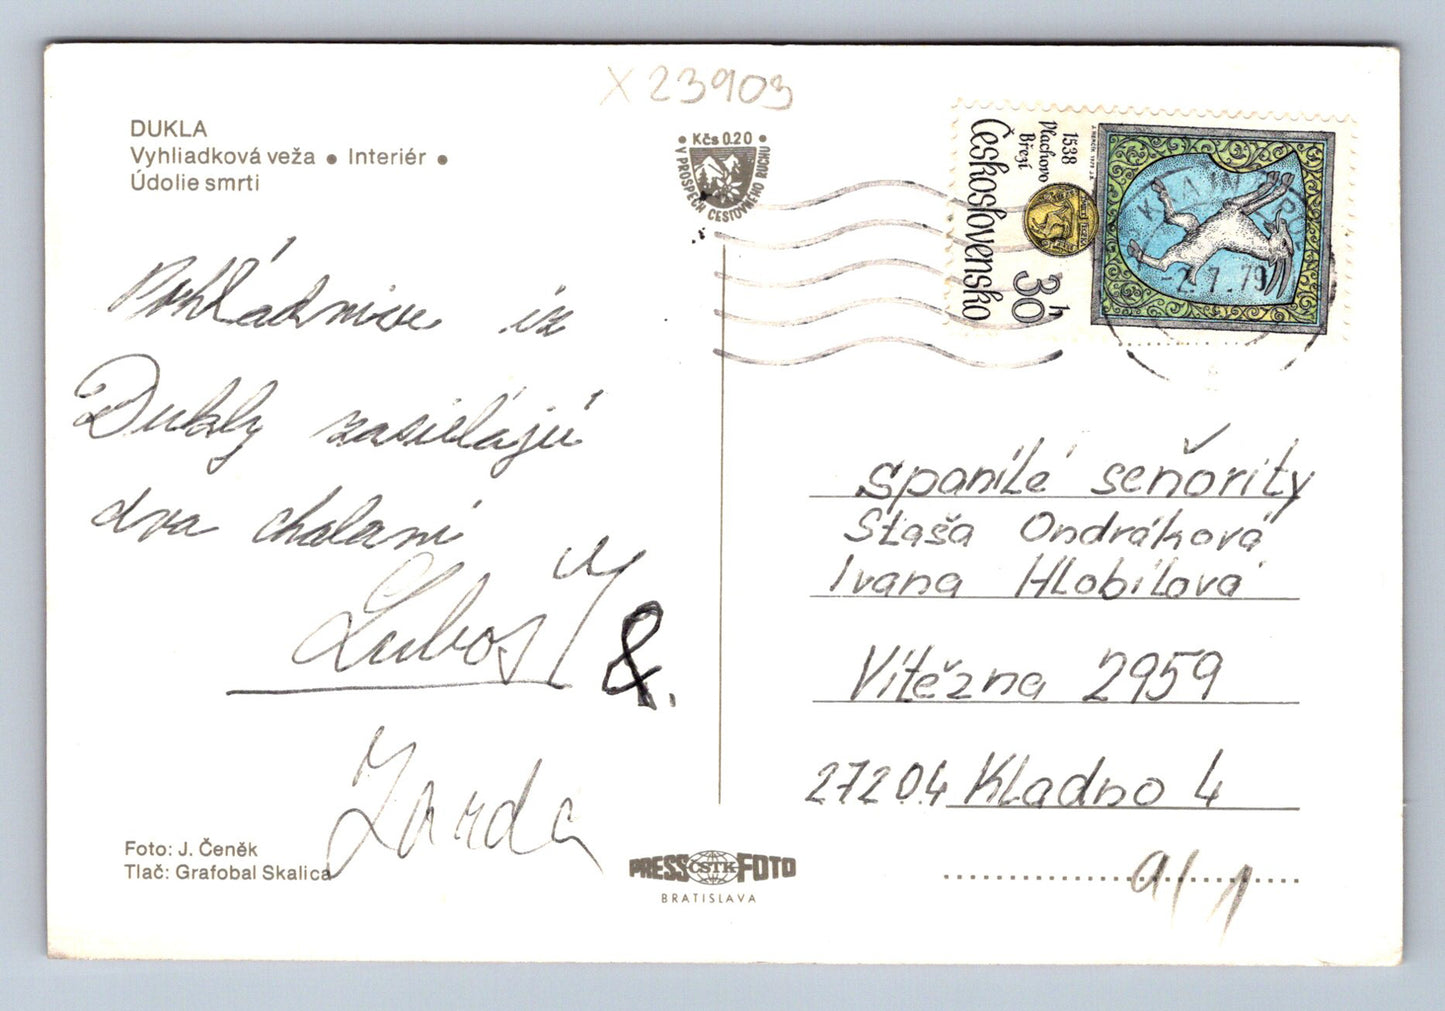 X 23903
DUKLA
Vyhliadková veža • Interiér •
Údolie smrti
• Kčs 0.20 •
V PROSPECH CESTOVNÉHO RUCHU
Československo
30 h
1538
Vlachovo
Březí
-2.7.79
Pohľadnice iz
Dukly zasielajú
dva chalani
Ľuboš
&.
Jarda
spanilé seňority
Staša Ondráková
Ivana Hlobilová
Vítězna 2959
27204 Kladno 4
a/1
Foto: J. Čeněk
Tlač: Grafobal Skalica
PRESS ČSTK FOTO
BRATISLAVA